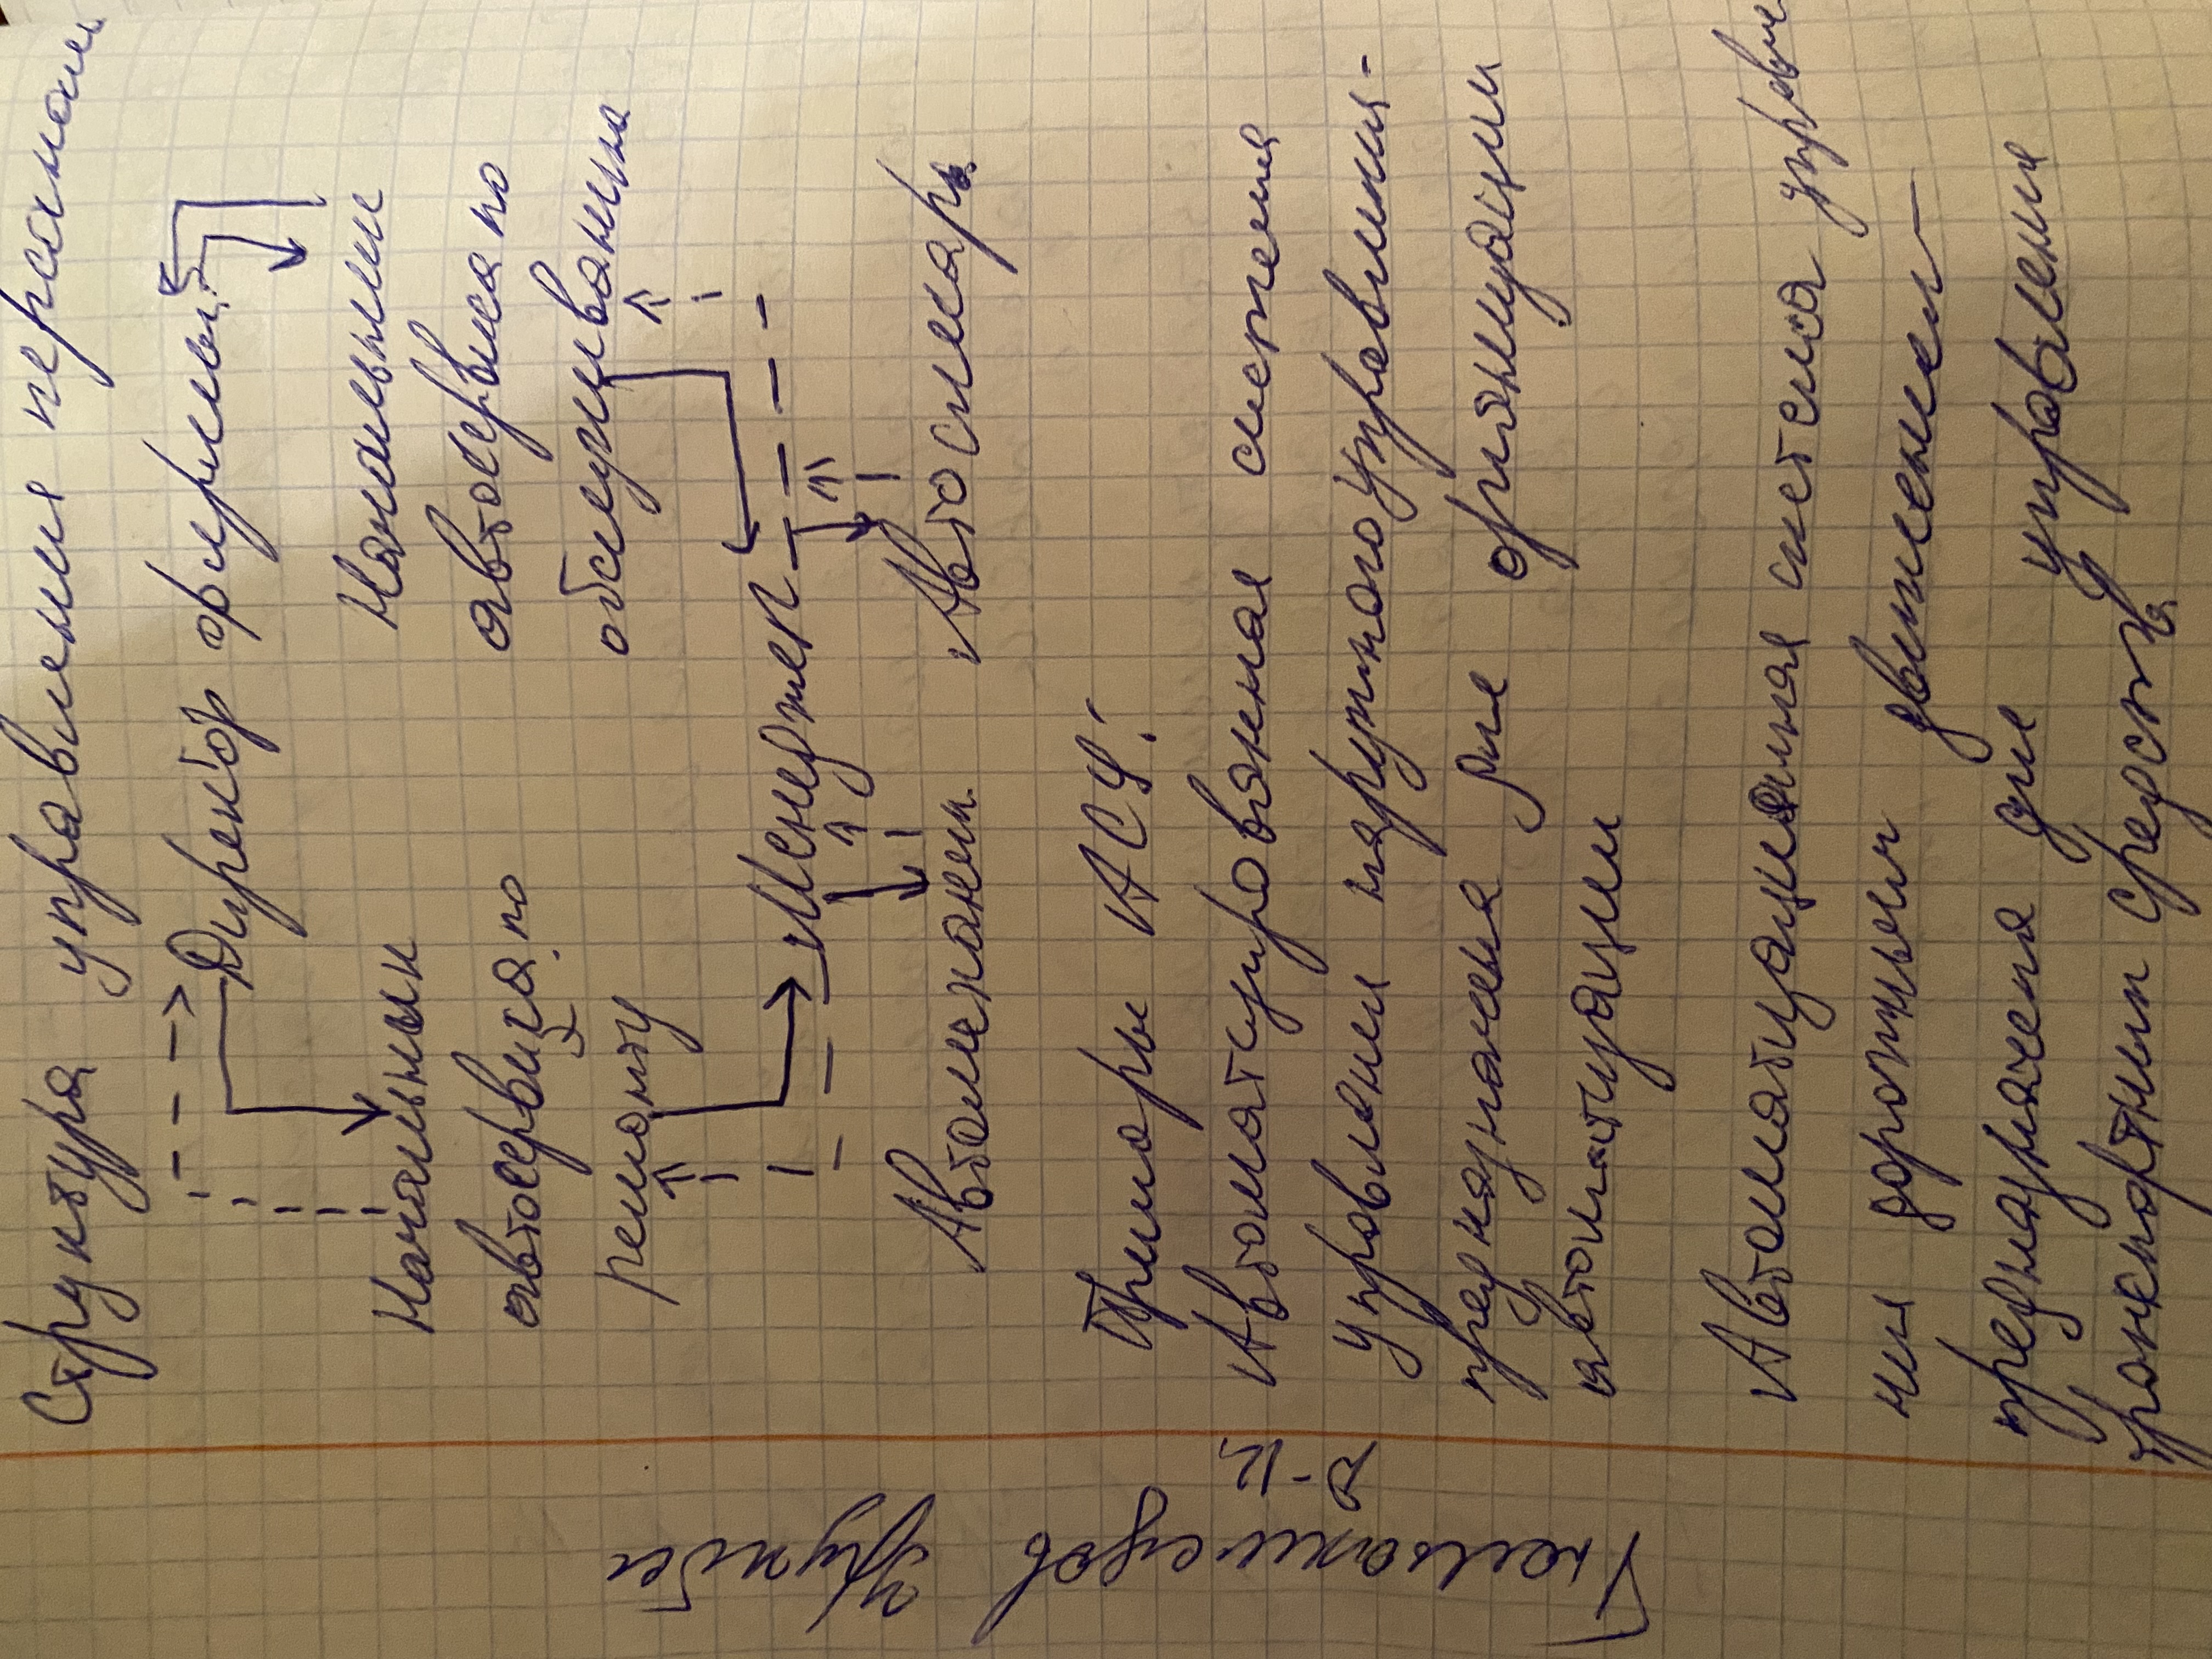 Структура управления персоналом
Директор фирмы
Начальник
автосервиса по
ремонту
Начальники
автосервиса по
обслуживанию
Менеджер
Автомеханик
Автослесарь
Примеры АСУ:
Автоматсированная система
управлении наружного управлении-
предназначена для организации
автоматизации
Автоматизационая система управле
нии дорожным движением —
предназначена для управления
транспортными средства